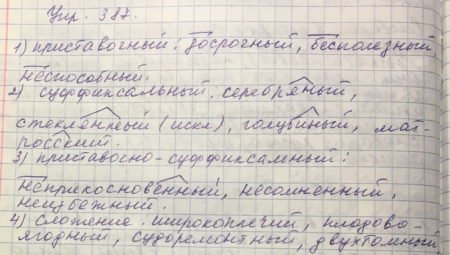 Упр. 387.
1) приставочный: досрочный, бесполезный
неспособный.
2) суффиксальный: серебряный,
стеклянный (искл), голубиный, мат-
росский.
3) приставочно-суффиксальный:
Неприкосновенный, несомненный,
неизбежный.
4) сложение: широкоплечий, плодово-
ягодный, судоремонтный, двухтомный